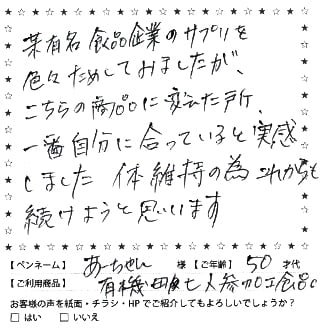 某有名食品企業のサプリを
色々ためしておりましたが、
こちらの商品に変えた所、
一番自分に合っていると実感
しました 体維持の為これからも
続けようと思います
【ペンネーム】あーちゃん 様【ご年齢】50 才代
【ご利用商品】有機田七人参加工食品
お客様の声を紙面・チラシ・HPでご紹介してもよろしいでしょうか？
□はい □いいえ